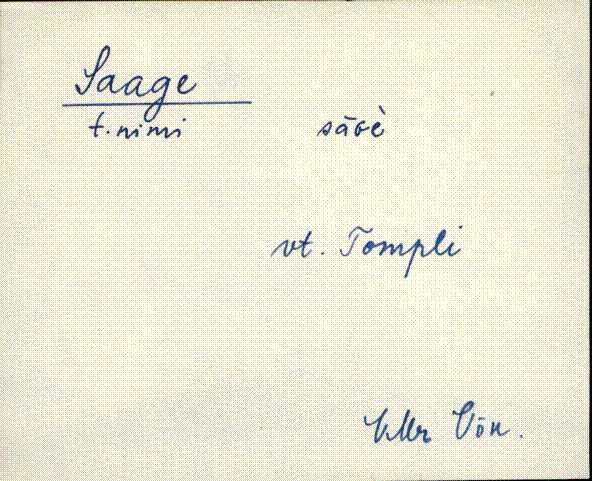 Saage
t. nimi sāɢè
vt. Tompli
Võn.